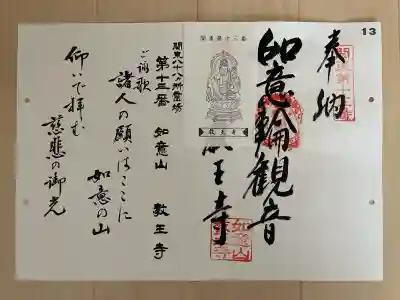 13
奉納
如意輪観音
教王寺
関東第十三番
教王寺
如意山
関東八十八カ所霊場
第十三番 如意山 教王寺
ご詠歌
諸人の願いはここに如意の山
仰いで拝む慈悲の御光